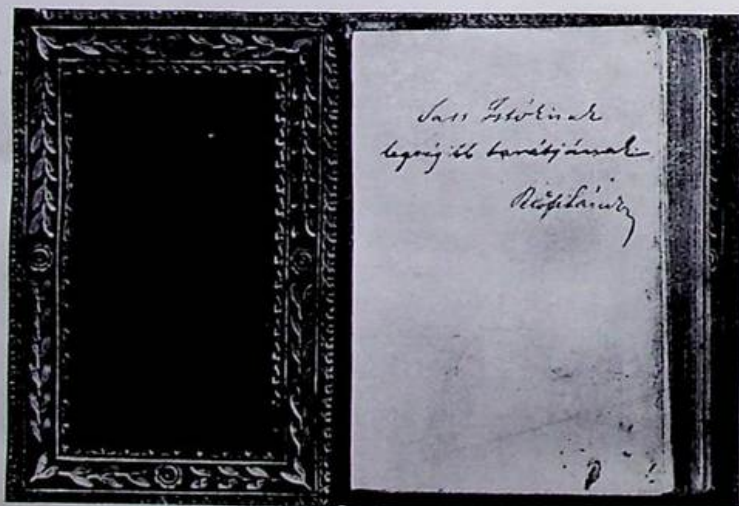 Sass Istóknak
legrégibb barátjának
Petőfi Sándor